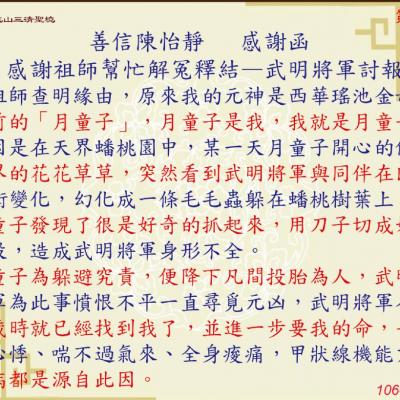 山三清聖境
第
善信陳怡靜 感謝函
感謝祖師幫忙解冤釋結—武明將軍討報
祖師查明緣由，原來我的元神是西華瑤池金
前的「月童子」，月童子是我，我就是月童
因是在天界蟠桃園中，某一天月童子開心的
界的花花草草，突然看到武明將軍與同伴在
術變化，幻化成一條毛毛蟲躲在蟠桃樹葉上
童子發現了很是好奇的抓起來，用刀子切成
段，造成武明將軍身形不全。
童子為躲避究責，便降下凡間投胎為人，武明
軍為此事憤恨不平一直尋覓元凶，武明將軍
歲時就已經找到我了，並進一步要我的命，
心悸、喘不過氣來、全身痠痛，甲狀線機能
病都是源自此因。
106